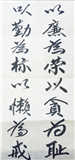 以廉為榮以貪為恥
以勤為標以懶為戒